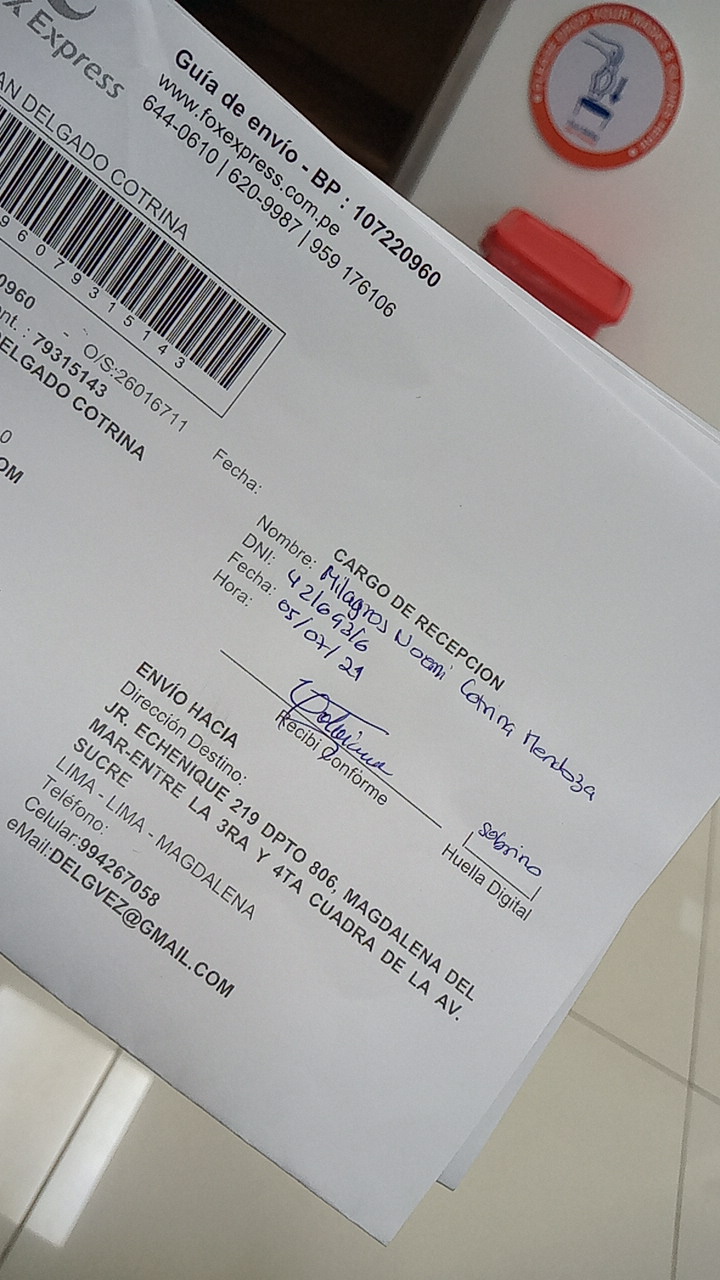 X Express
Guía de envío - BP : 107220960
www.foxexpress.com.pe
644-0610 | 620-9987 | 959 176106
AN DELGADO COTRINA
96079315143
0960 - O/S:26016711
ent. : 79315143
DELGADO COTRINA
0
OM
Fecha:
CARGO DE RECEPCION
Nombre: Milagros Noemi Cotrina Mendoza
DNI: 42169216
Fecha: 05/07/21
Hora:
Recibi Conforme
sobrino
Huella Digital
ENVÍO HACIA
Dirección Destino:
JR. ECHENIQUE 219 DPTO 806, MAGDALENA DEL
MAR-ENTRE LA 3RA Y 4TA CUADRA DE LA AV.
SUCRE
LIMA - LIMA - MAGDALENA
Teléfono:
Celular:994267058
eMail:DELGVEZ@GMAIL.COM